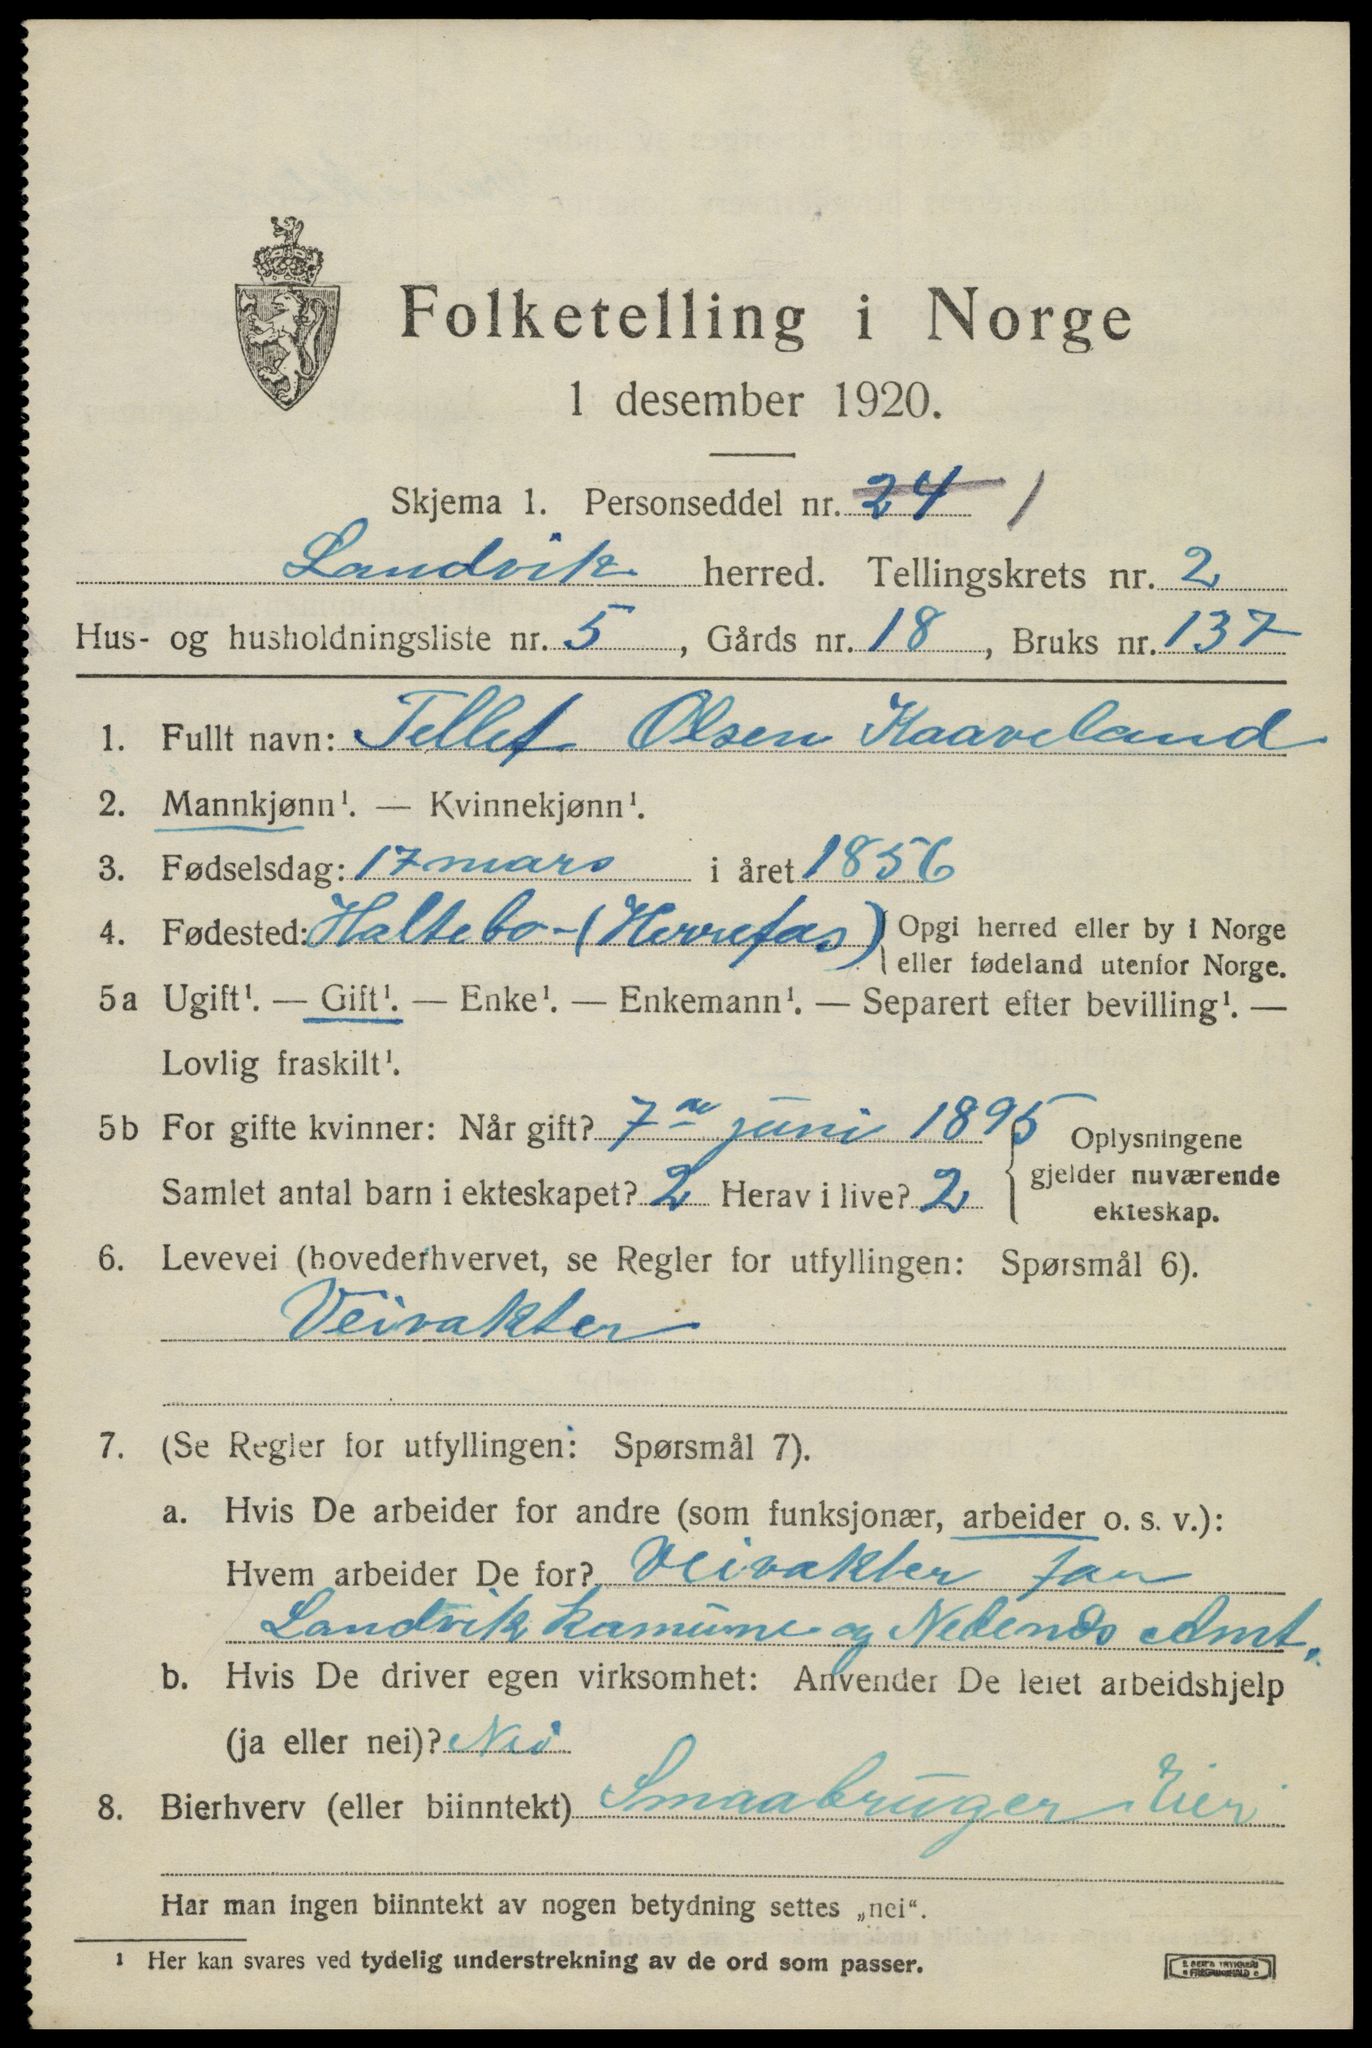 Folketelling i Norge
1 desember 1920.
Skjema 1. Personseddel nr. 24 1
Landvik herred. Tellingskrets nr. 2
Hus- og husholdningsliste nr. 5, Gårds nr. 18, Bruks nr. 137
1. Fullt navn: Tellef Olsen Kaaveland
2. Mannkjønn¹. — Kvinnekjønn¹.
3. Fødselsdag: 17 mars i året 1856
4. Fødested: Haltebo - (Herrefos) Opgi herred eller by i Norge
eller fødeland utenfor Norge.
5a Ugift¹. — Gift¹. — Enke¹. — Enkemann¹. — Separert efter bevilling¹. —
Lovlig fraskilt¹.
5b For gifte kvinner: Når gift? 7de juni 1895 Oplysningene
gjelder nuværende
Samlet antal barn i ekteskapet? 2 Herav i live? 2
ekteskap.
6. Levevei (hovederhvervet, se Regler for utfyllingen: Spørsmål 6).
Veivakter
7. (Se Regler for utfyllingen: Spørsmål 7).
a. Hvis De arbeider for andre (som funksjonær, arbeider o. s. v.):
Hvem arbeider De for? Veivakter for
Landvik kamune og Nedenes Amt.
b. Hvis De driver egen virksomhet: Anvender De leiet arbeidshjelp
(ja eller nei)? Nei
8. Bierhverv (eller biinntekt) Smaabruger Eier
Har man ingen biinntekt av nogen betydning settes „nei“.
¹ Her kan svares ved tydelig understrekning av de ord som passer.